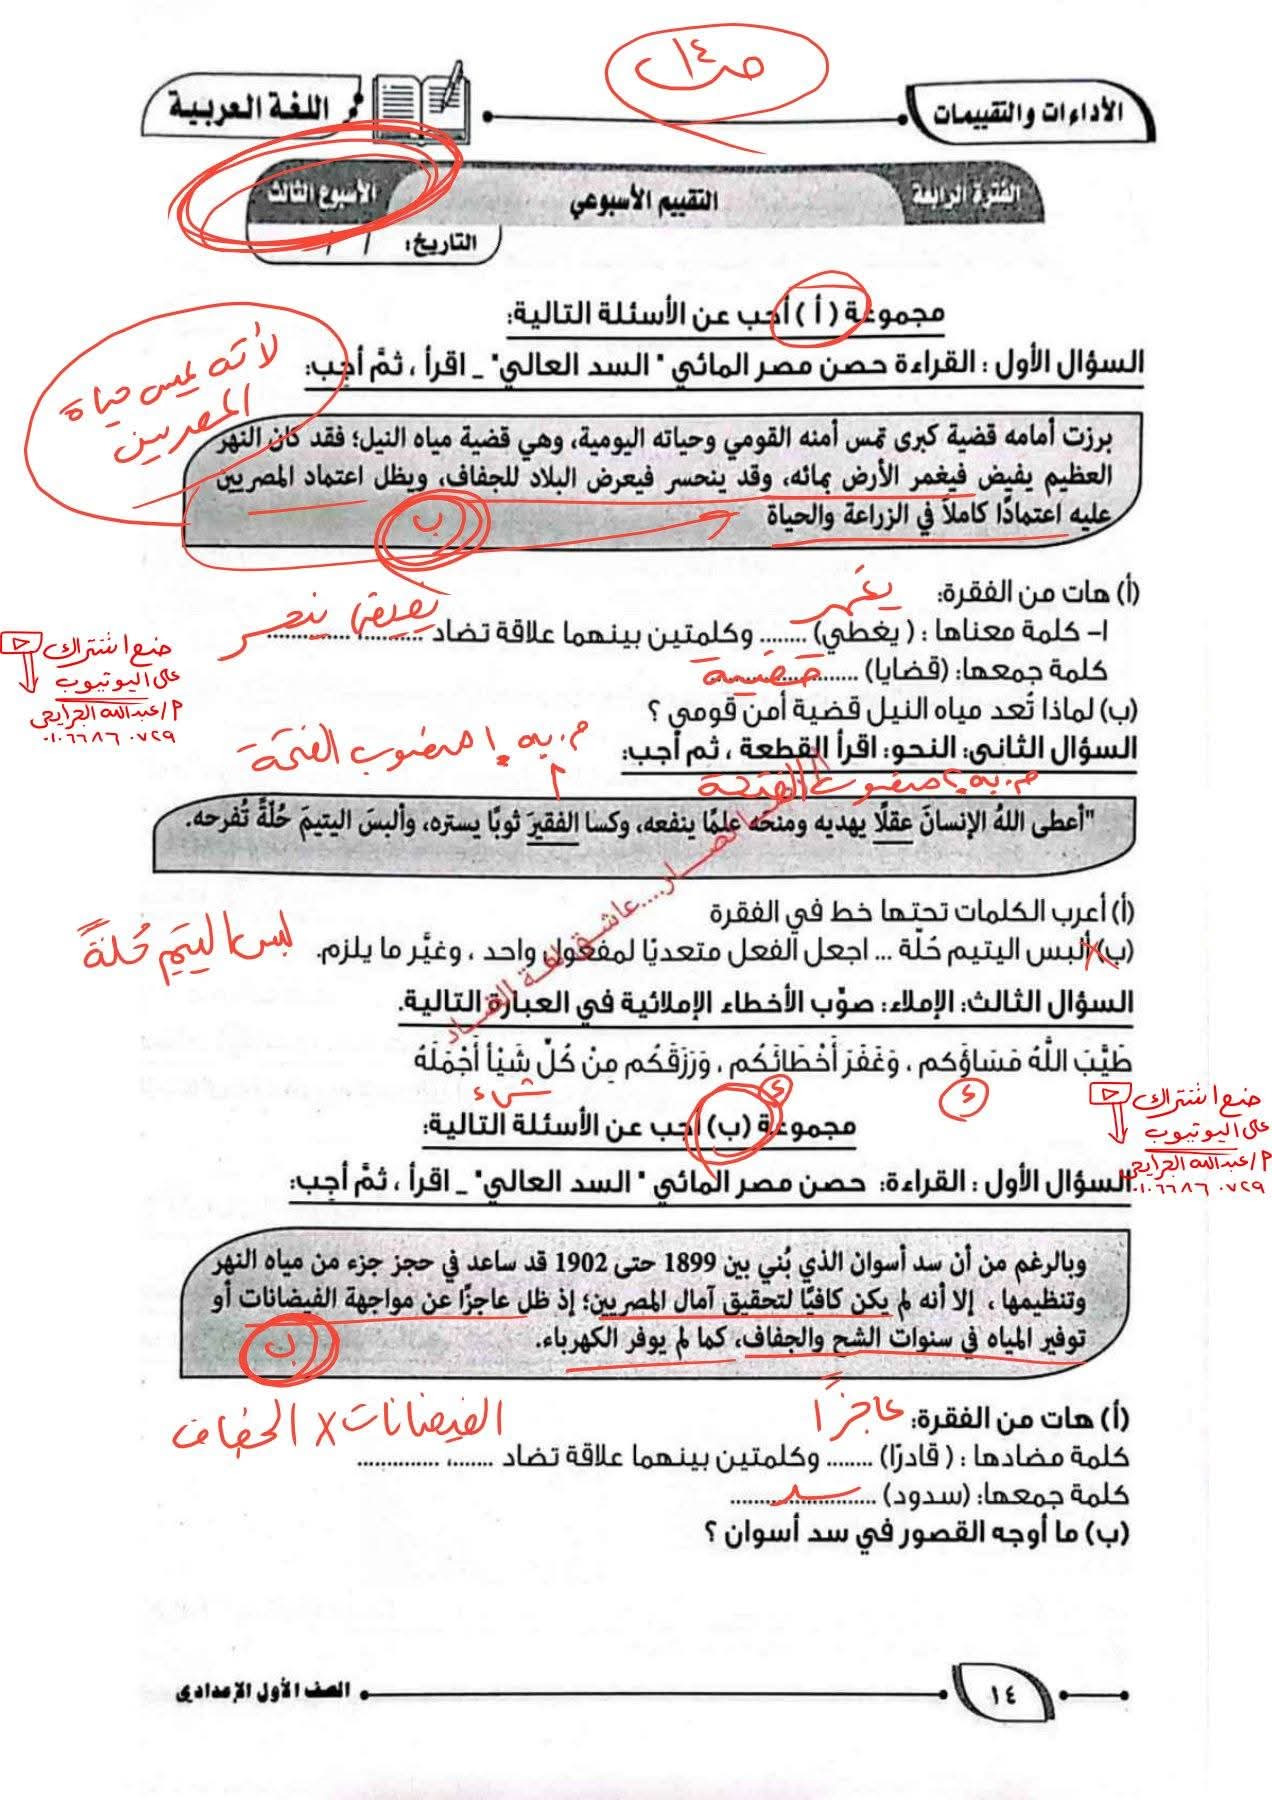 ص ١٤
الأداءات والتقييمات
اللغة العربية
الفترة الرابعة
التقييم الأسبوعي
الأسبوع الثالث
التاريخ: / /
مجموعة ( أ ) أجب عن الأسئلة التالية:
السؤال الأول : القراءة حصن مصر المائي " السد العالي" _ اقرأ ، ثمَّ أجِب:
لأنه يمس حياة
المصريين
برزت أمامه قضية كبرى تمس أمنه القومي وحياته اليومية، وهي قضية مياه النيل؛ فقد كان النهر
العظيم يفيض فيغمر الأرض بمائه، وقد ينحسر فيعرض البلاد للجفاف، ويظل اعتماد المصريين
عليه اعتمادًا كاملاً في الزراعة والحياة
ب
(أ) هات من الفقرة:
يغمر
يفيض، ينحسر
١- كلمة معناها : ( يغطي) ........ وكلمتين بينهما علاقة تضاد ........، ..............
كلمة جمعها: (قضايا) ......................
قضية
(ب) لماذا تُعد مياه النيل قضية أمن قومي ؟
السؤال الثاني: النحو: اقرأ القطعة ، ثم أجب:
م.به ١ منصوب الفتحة
م.به ٢ منصوب الفتحة
"أعطى اللهُ الإنسانَ عقلًا يهديه ومنحَه علمًا ينفعه، وكسا الفقيرَ ثوبًا يستره، وألبسَ اليتيمَ حُلّةً تُفرحه.
(أ) أعرب الكلمات تحتها خط في الفقرة
(ب) ألبس اليتيم حُلّة ... اجعل الفعل متعديًا لمفعول واحد ، وغيَّر ما يلزم.
لبس اليتيم حُلةً
السؤال الثالث: الإملاء: صوِّب الأخطاء الإملائية في العبارة التالية.
طَيَّبَ اللَّهُ مَسَاؤَكم ، وَغَفَرَ أَخْطَائَكُم ، وَرَزَقَكُم مِنْ كُلِّ شَيْأ أَجْمَلَهُ
ء
ء
شيء
مجموعة (ب) أجب عن الأسئلة التالية:
السؤال الأول : القراءة: حصن مصر المائي " السد العالي" _ اقرأ ، ثمَّ أجِب:
وبالرغم من أن سد أسوان الذي بُني بين 1899 حتى 1902 قد ساعد في حجز جزء من مياه النهر
وتنظيمها ، إلا أنه لم يكن كافيًا لتحقيق آمال المصريين؛ إذ ظل عاجزًا عن مواجهة الفيضانات أو
توفير المياه في سنوات الشح والجفاف، كما لم يوفر الكهرباء.
ب
(أ) هات من الفقرة:
عاجزًا
الفيضانات X الجفاف
كلمة مضادها : ( قادرًا) ........ وكلمتين بينهما علاقة تضاد .......، ..............
كلمة جمعها: (سدود) ......................
سد
(ب) ما أوجه القصور في سد أسوان ؟
ضع اشتراك
على اليوتيوب
م/عبدالله الجرايحى
٠١٠٦٦٨٦٠٧٢٩
ضع اشتراك
على اليوتيوب
م/عبدالله الجرايحى
٠١٠٦٦٨٦٠٧٢٩
عاشق لغة الضاد
١٤
الصف الأول الإعدادى